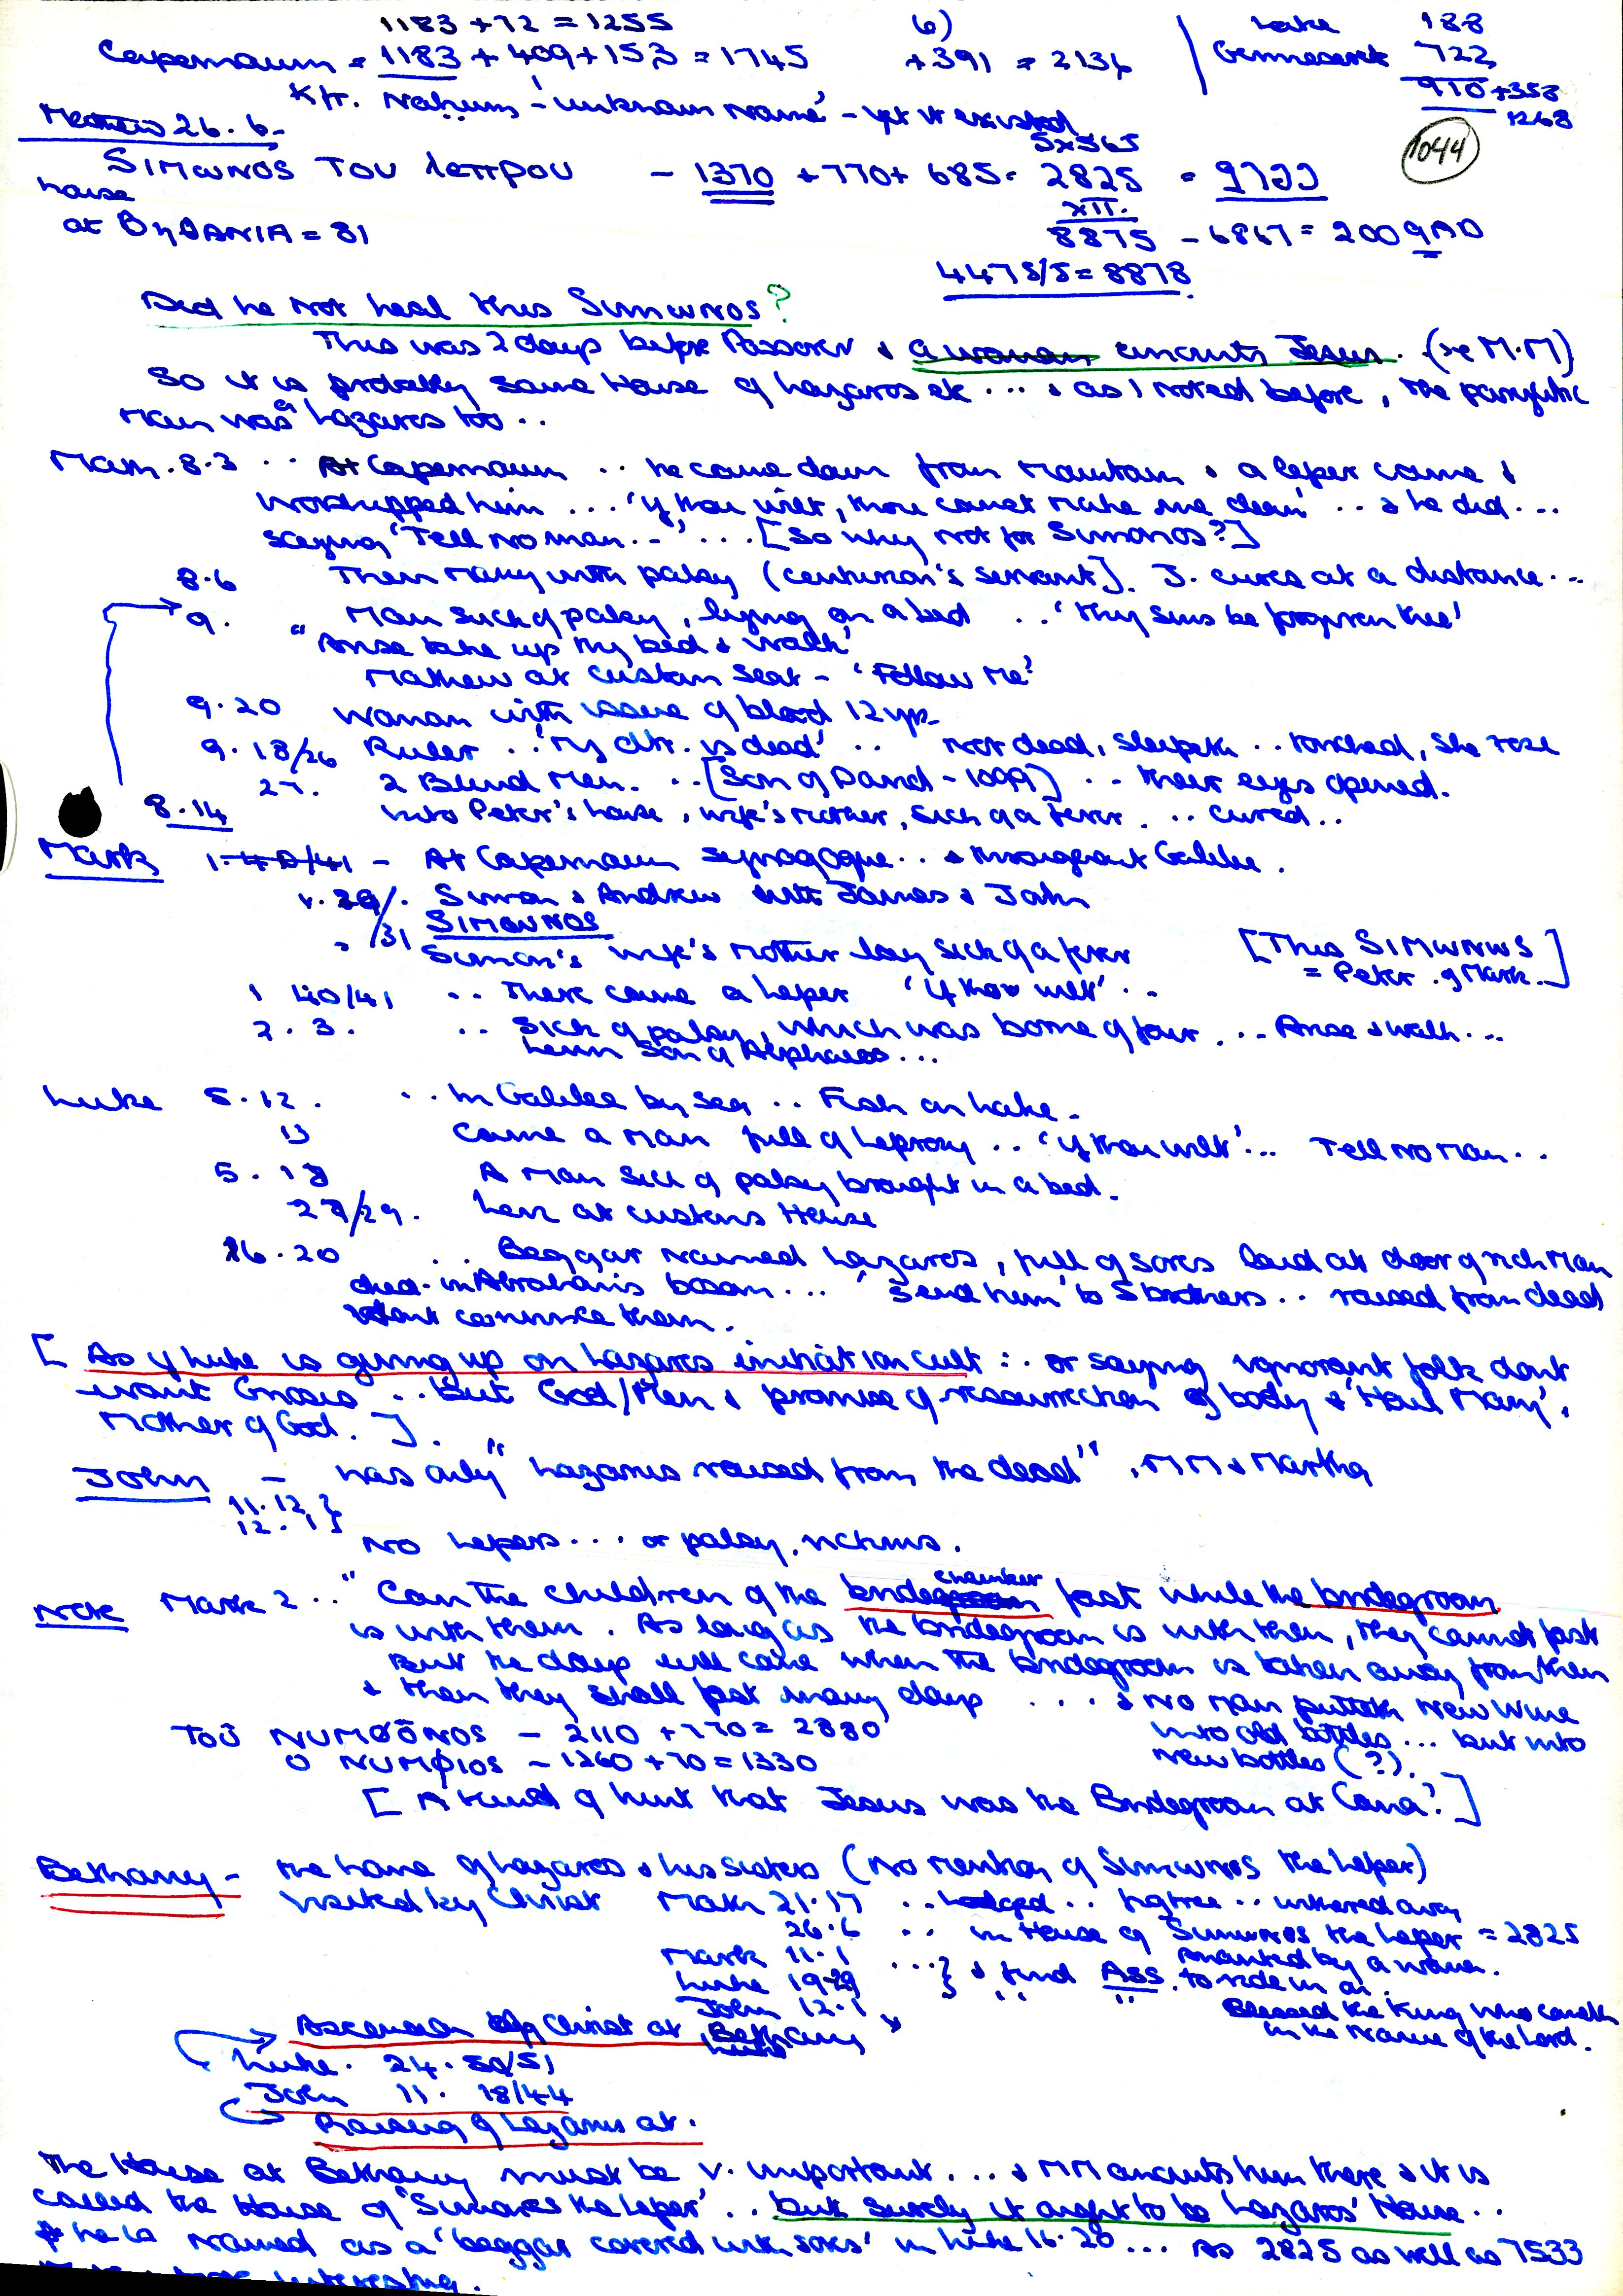 1183 + 72 = 1255
Capernaum = 1183 + 409 + 153 = 1745 +391 = 2136
Lake 188
Gennesaret 722
910 + 358
1268
Kfr. Nahum - 'unknown name' - yet it existed
1044
Matthew 26.6-
5x565
SIMωNOS TOU λεπρου - 1370 + 770 + 685 = 2825
house
at BηθANIA = 81
8875 - 6867 = 2009 AD
4475/5 = 8878
Did he not heal this Simωnos?
This was 2 days before Passover & a woman anoints Jesus. (ye M.M)
So it is probably same House of Lazaros etc ... & as I noted before, the paralytic
man was Lazaros too ..
Math. 8.3 .. At Capernaum .. he came down from mountain & a leper came &
worshipped him ... 'if thou wilt, thou canst make me clean' .. & he did ...
saying 'Tell no man..' ... [So why not for Simonos?]
8.6 Then many with palsy (centurion's servant). J. cures at a distance ...
9. Man sick of palsy, lying on a bed .. 'thy sins be forgiven thee'
"Arise take up thy bed & walk'
Mathew at custom seat - 'Follow Me'
9.20 Woman with issue of blood 12 yrs
9.18/26 Ruler .. 'my dtr. is dead' .. not dead, sleepeth .. touched, she rose
27. 2 Blind Men. .. [Son of David - 1099] .. their eyes opened.
8.14 into Peter's house, wife's mother, sick of a fever . .. cured ..
Mark 1.40/41 - At Capernaum synagogue .. & throughout Galilee.
v. 29/. Simon & Andrew with James & John
/31 SIMωNOS
Simon's wife's mother lay sick of a fever [This SIMWNWS
= Peter of Mark.]
1 40/41 .. There came a leper 'if thou wilt' ..
2. 3. .. Sick of palsy, which was borne of four ... Arise & walk ...
Levi son of Alphaeus ...
Luke 5.12. .. In Galilee by sea .. Fish on Lake.
13 Came a man full of leprosy .. 'if thou wilt' ... Tell no man ..
5. 18 A man sick of palsy brought in a bed.
27/29. Levi at customs House
16.20 .. Beggar named Lazaros, full of sores laid at door of rich man
died. in Abraham's bosom ... 'send him' to 5 brothers .. raised from dead
wont convince them.
[ As if Luke is giving up on Lazaros initiation cult : or saying ignorant folk dont
want Gnosis .. But God/Men & promise of resurrection of body & 'Hail Mary',
Mother of God. ].
John - has only "Lazarus raised from the dead", MM & Martha
11.12 }
12.1 }
No lepers ... or palsy victims.
Note Mark 2 .. "Can the children of the bridechamber fast while the bridegroom
is with them. As long as the bridegroom is with them, they cannot fast
But the days will come when the bridegroom is taken away from them
& then they shall fast many days ... & no man putteth new wine
into old bottles ... but into
new bottles (?).
Toῦ NUMΦῶNOS - 2110 + 770 = 2880
O NUMΦIOS - 1260 + 70 = 1330
[ A kind of hint that Jesus was the Bridegroom at Cana? ]
Bethany - the home of Lazaros & his sisters (no mention of Simωnos the Leper)
Visited by Christ Math 21.17 .. lodged .. figtree .. withered away
26.6 .. in House of Simωnos the Leper = 2825
Anointed by a woman.
Mark 11.1 ...} & find Ass to ride in on.
Luke 19.29 }
John 12.1 Blessed the King who cometh
in the Name of the Lord.
Ascension of Christ at Bethany
Luke. 24.50/51
John 11. 18/44
Raising of Lazarus at.
The House at Bethany must be v. important ... & MM anoints him there & it is
called the House of 'Simonos the Leper' .. but surely it ought to be Lazaros' House ..
he is named as a 'beggar covered with sores' in Luke 16.20 ... As 2825 as well as 7533
interesting.